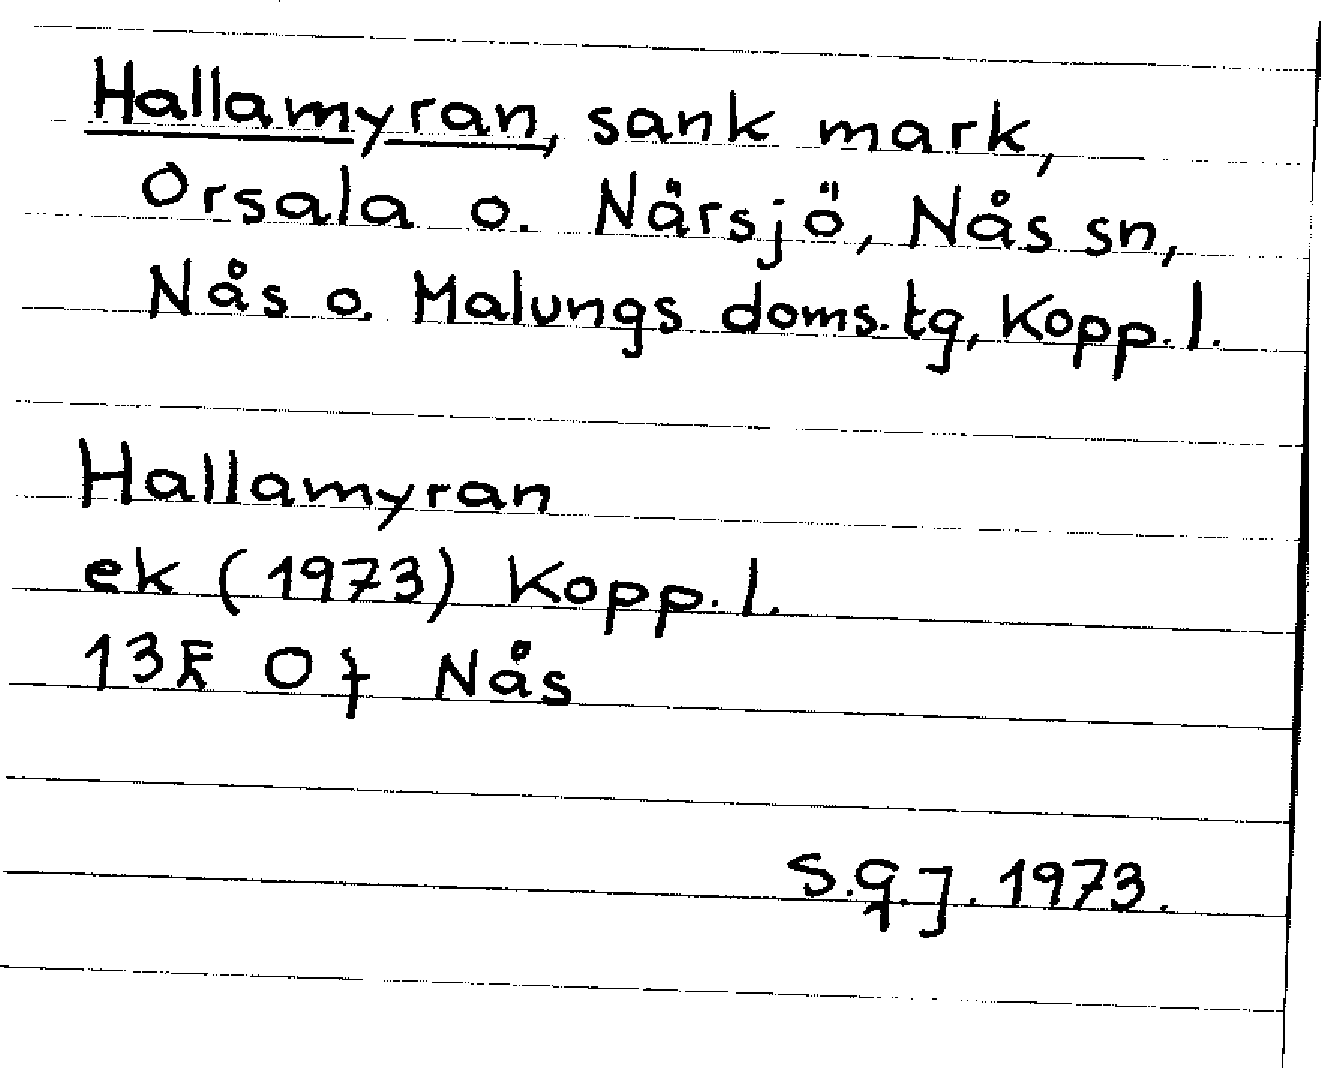 Hallamyran, sank mark,
Orsala o. Närsjö, Nås sn,
Nås o. Malungs doms.tg, Kopp.l.
Hallamyran
ek (1973) Kopp.l.
13F 0f Nås
S.G.J. 1973.